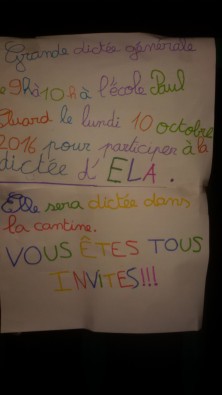 Grande dictée générale
e 9h à 10h à l'école Paul
Éluard le lundi 10 octobre
2016 pour participer à la
dictée d'ELA.
Elle sera dictée dans
la cantine.
VOUS ÊTES TOUS
INVITES!!!